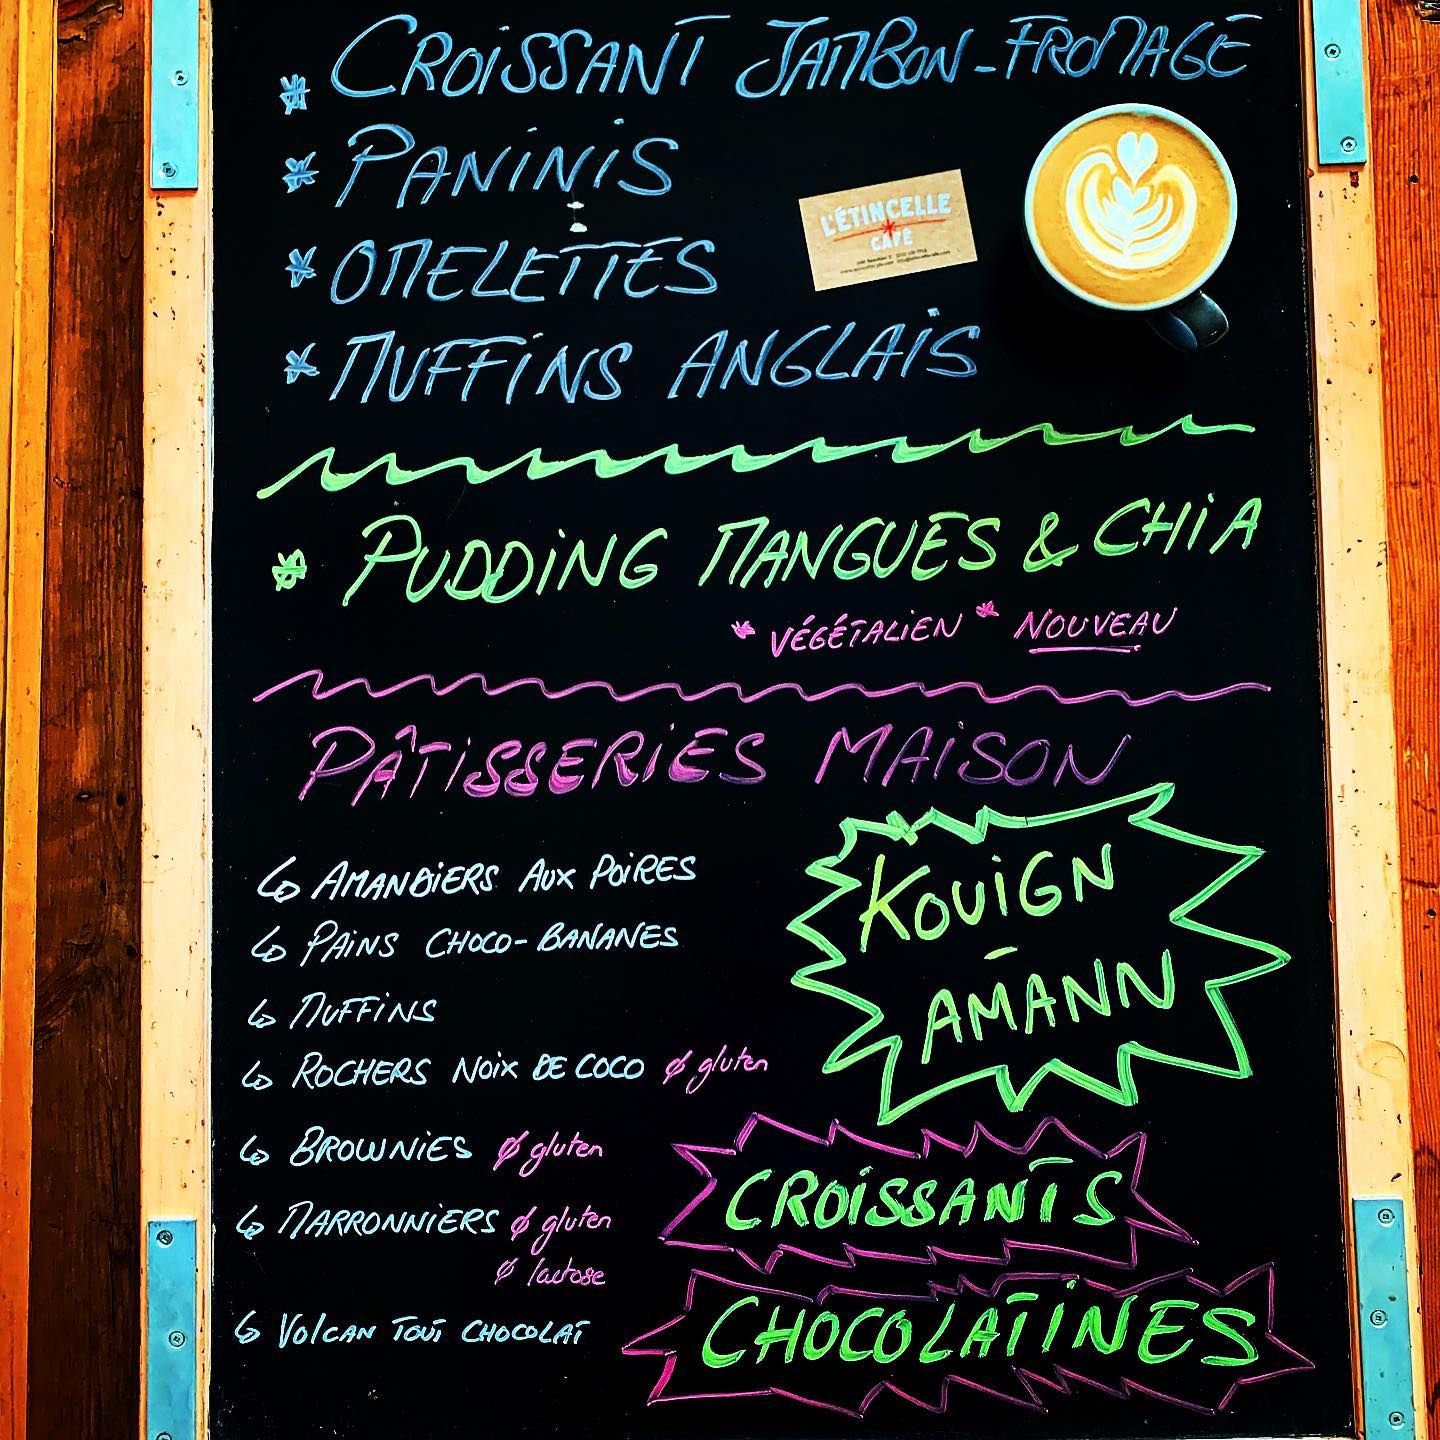 * CROISSANT JAMBON-FROMAGE
* PANINIS
* OMELETTES
L'ÉTINCELLE
CAFÉ
* MUFFINS ANGLAIS
* PUDDING MANGUES & CHIA
* VÉGÉTALIEN * NOUVEAU
PÂTISSERIES MAISON
↳ AMANDIERS AUX POIRES
↳ PAINS CHOCO-BANANES
↳ MUFFINS
↳ ROCHERS NOIX DE COCO Ø gluten
↳ BROWNIES Ø gluten
↳ MARRONNIERS Ø gluten
Ø lactose
↳ VOLCAN TOUT CHOCOLAT
KOUIGN
AMANN
CROISSANTS
CHOCOLATINES